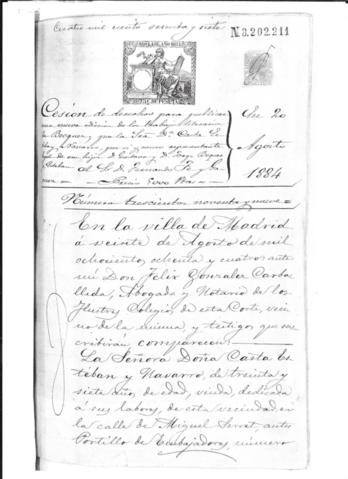 Cuatro mil ciento sesenta y siete
N.3.202.211
Cesión de derechos para publicar
una nueva edición de las obras literarias
de Becquer, por la Sra. Dª Casta Es-
teban y Navarro, por sí y como representante
legal de sus hijos D. Gustavo y D. Jorge Becquer
Esteban al Sr. D. Fernando Fe y
Precio
En 20
Agosto
1884
Número trescientos noventa y nueve
En la villa de Madrid
á veinte de Agosto de mil
ochocientos ochenta y cuatro ante
mí Don Felix Gonzalez Carba-
lleda, Abogado y Notario de los
Ilustres Colegios de esta Corte, veci-
no de la misma y testigos que sus-
cribirán comparecen:
La Señora Doña Casta Es-
téban y Navarro, de treinta y
siete años de edad, viuda, dedicada
á sus labores, de esta vecindad en
la calle de Miguel Servet, antes
Portillo de Embajadores, número